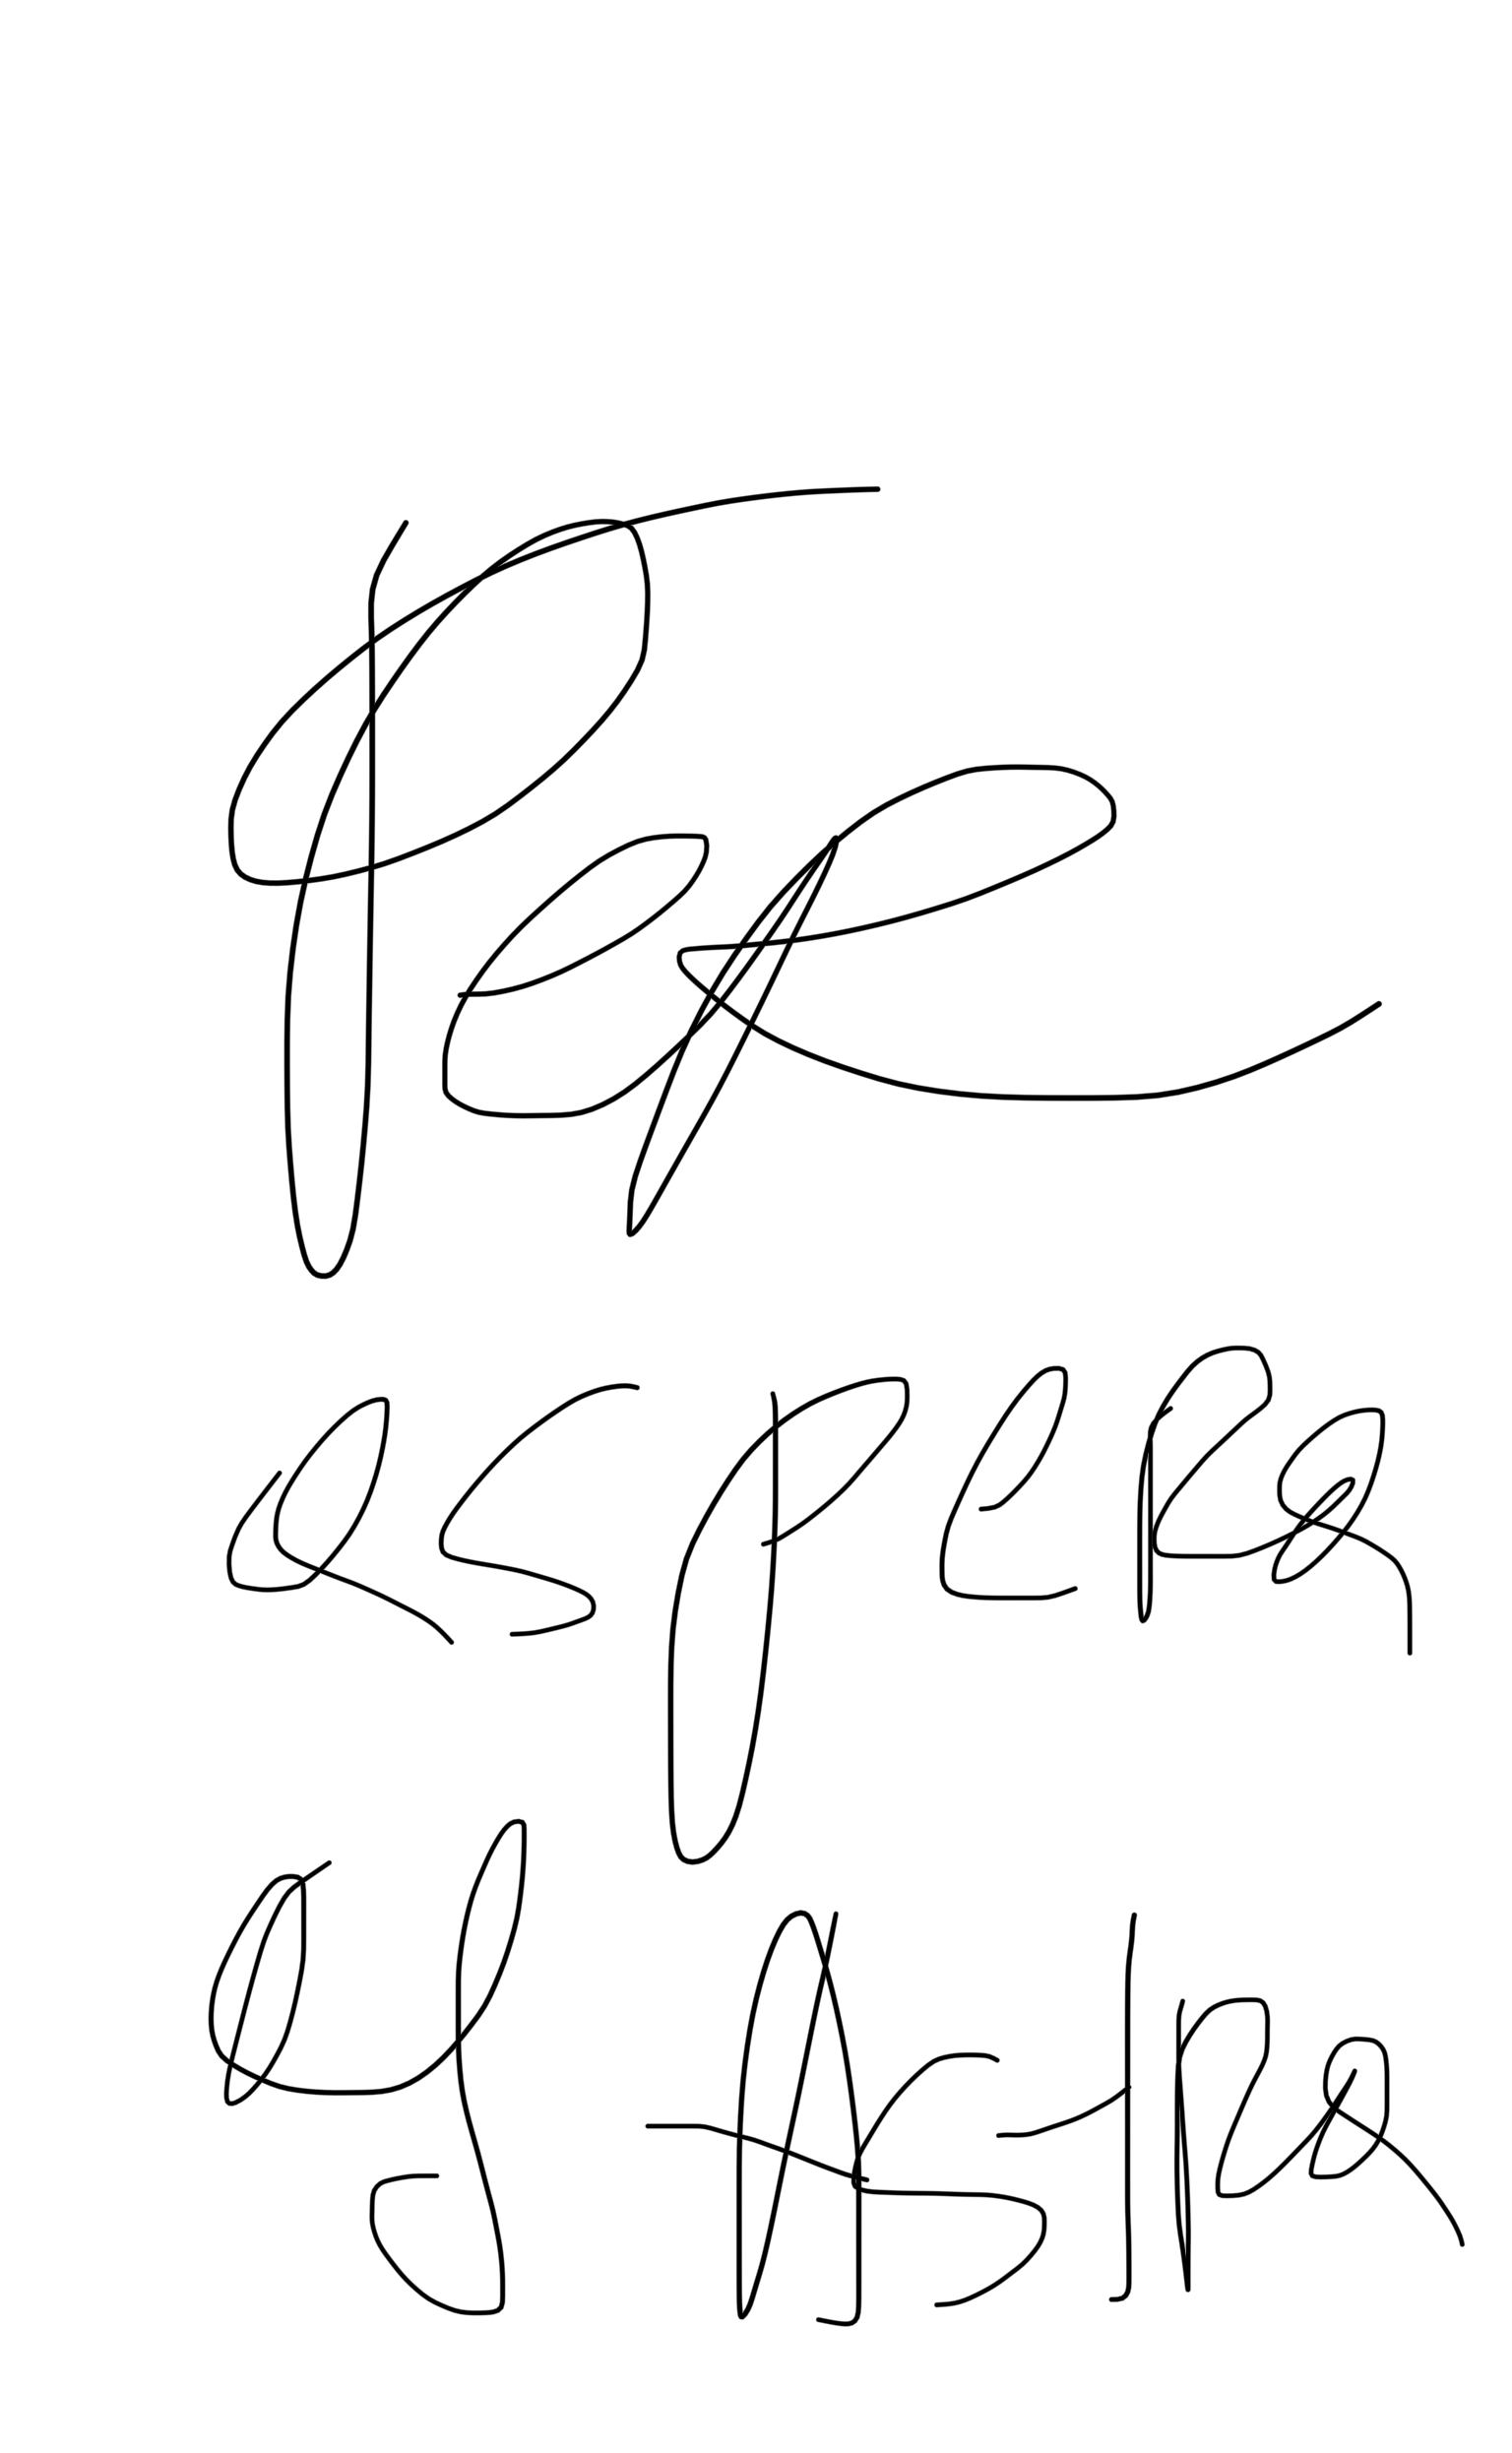 Per
aspera
ad Astra